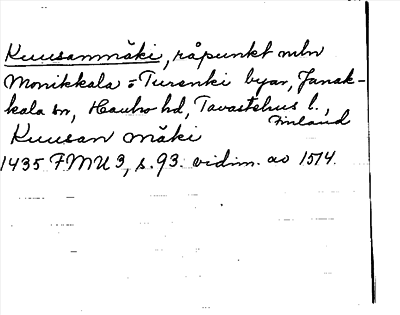 Kuusanmäki, råpunkt mln
Monikkala o Turenki byar, Janak-
kala sn, Hauho hd, Tavastehus l.,
Finland
Kuusan mäki
1435 FMU 3, s. 93. vidim. av 1514.